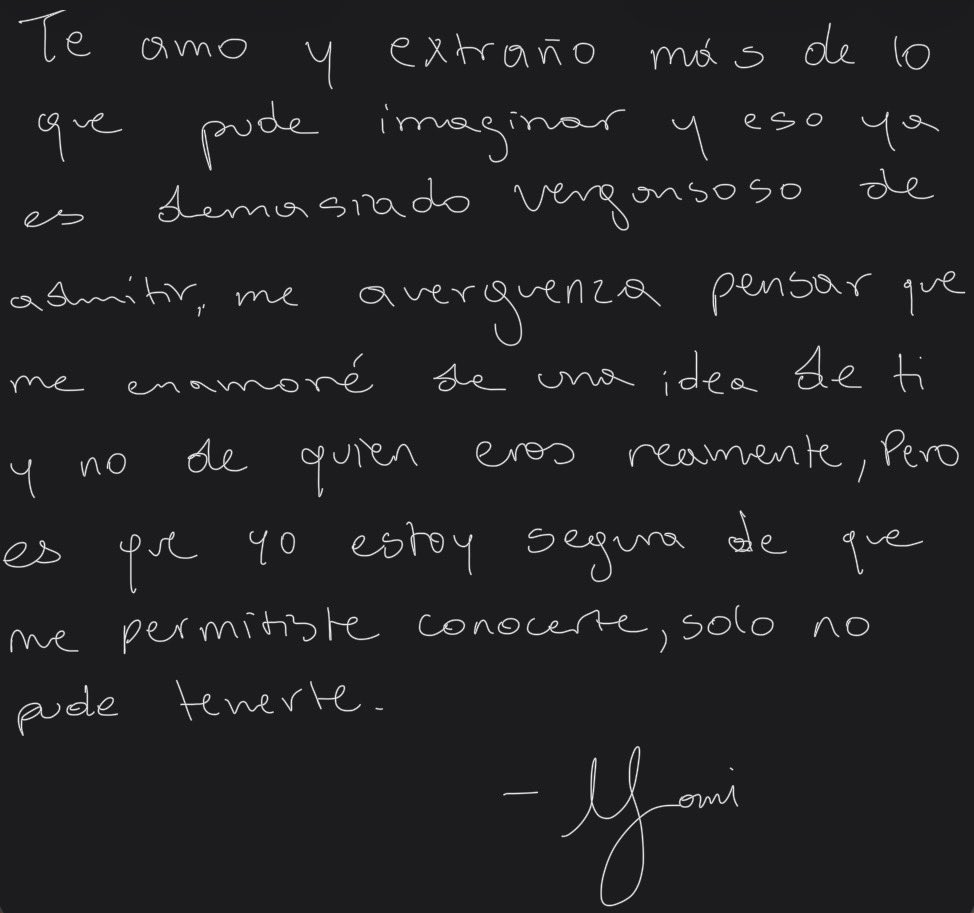 Te amo y extraño más de lo
que pude imaginar y eso ya
es demasiado vergonsoso de
admitir, me averguenza pensar que
me enamoré de una idea de ti
y no de quien eras reamente, Pero
es que yo estoy segura de que
me permitiste conocerte, solo no
pude tenerte.
- Yomi